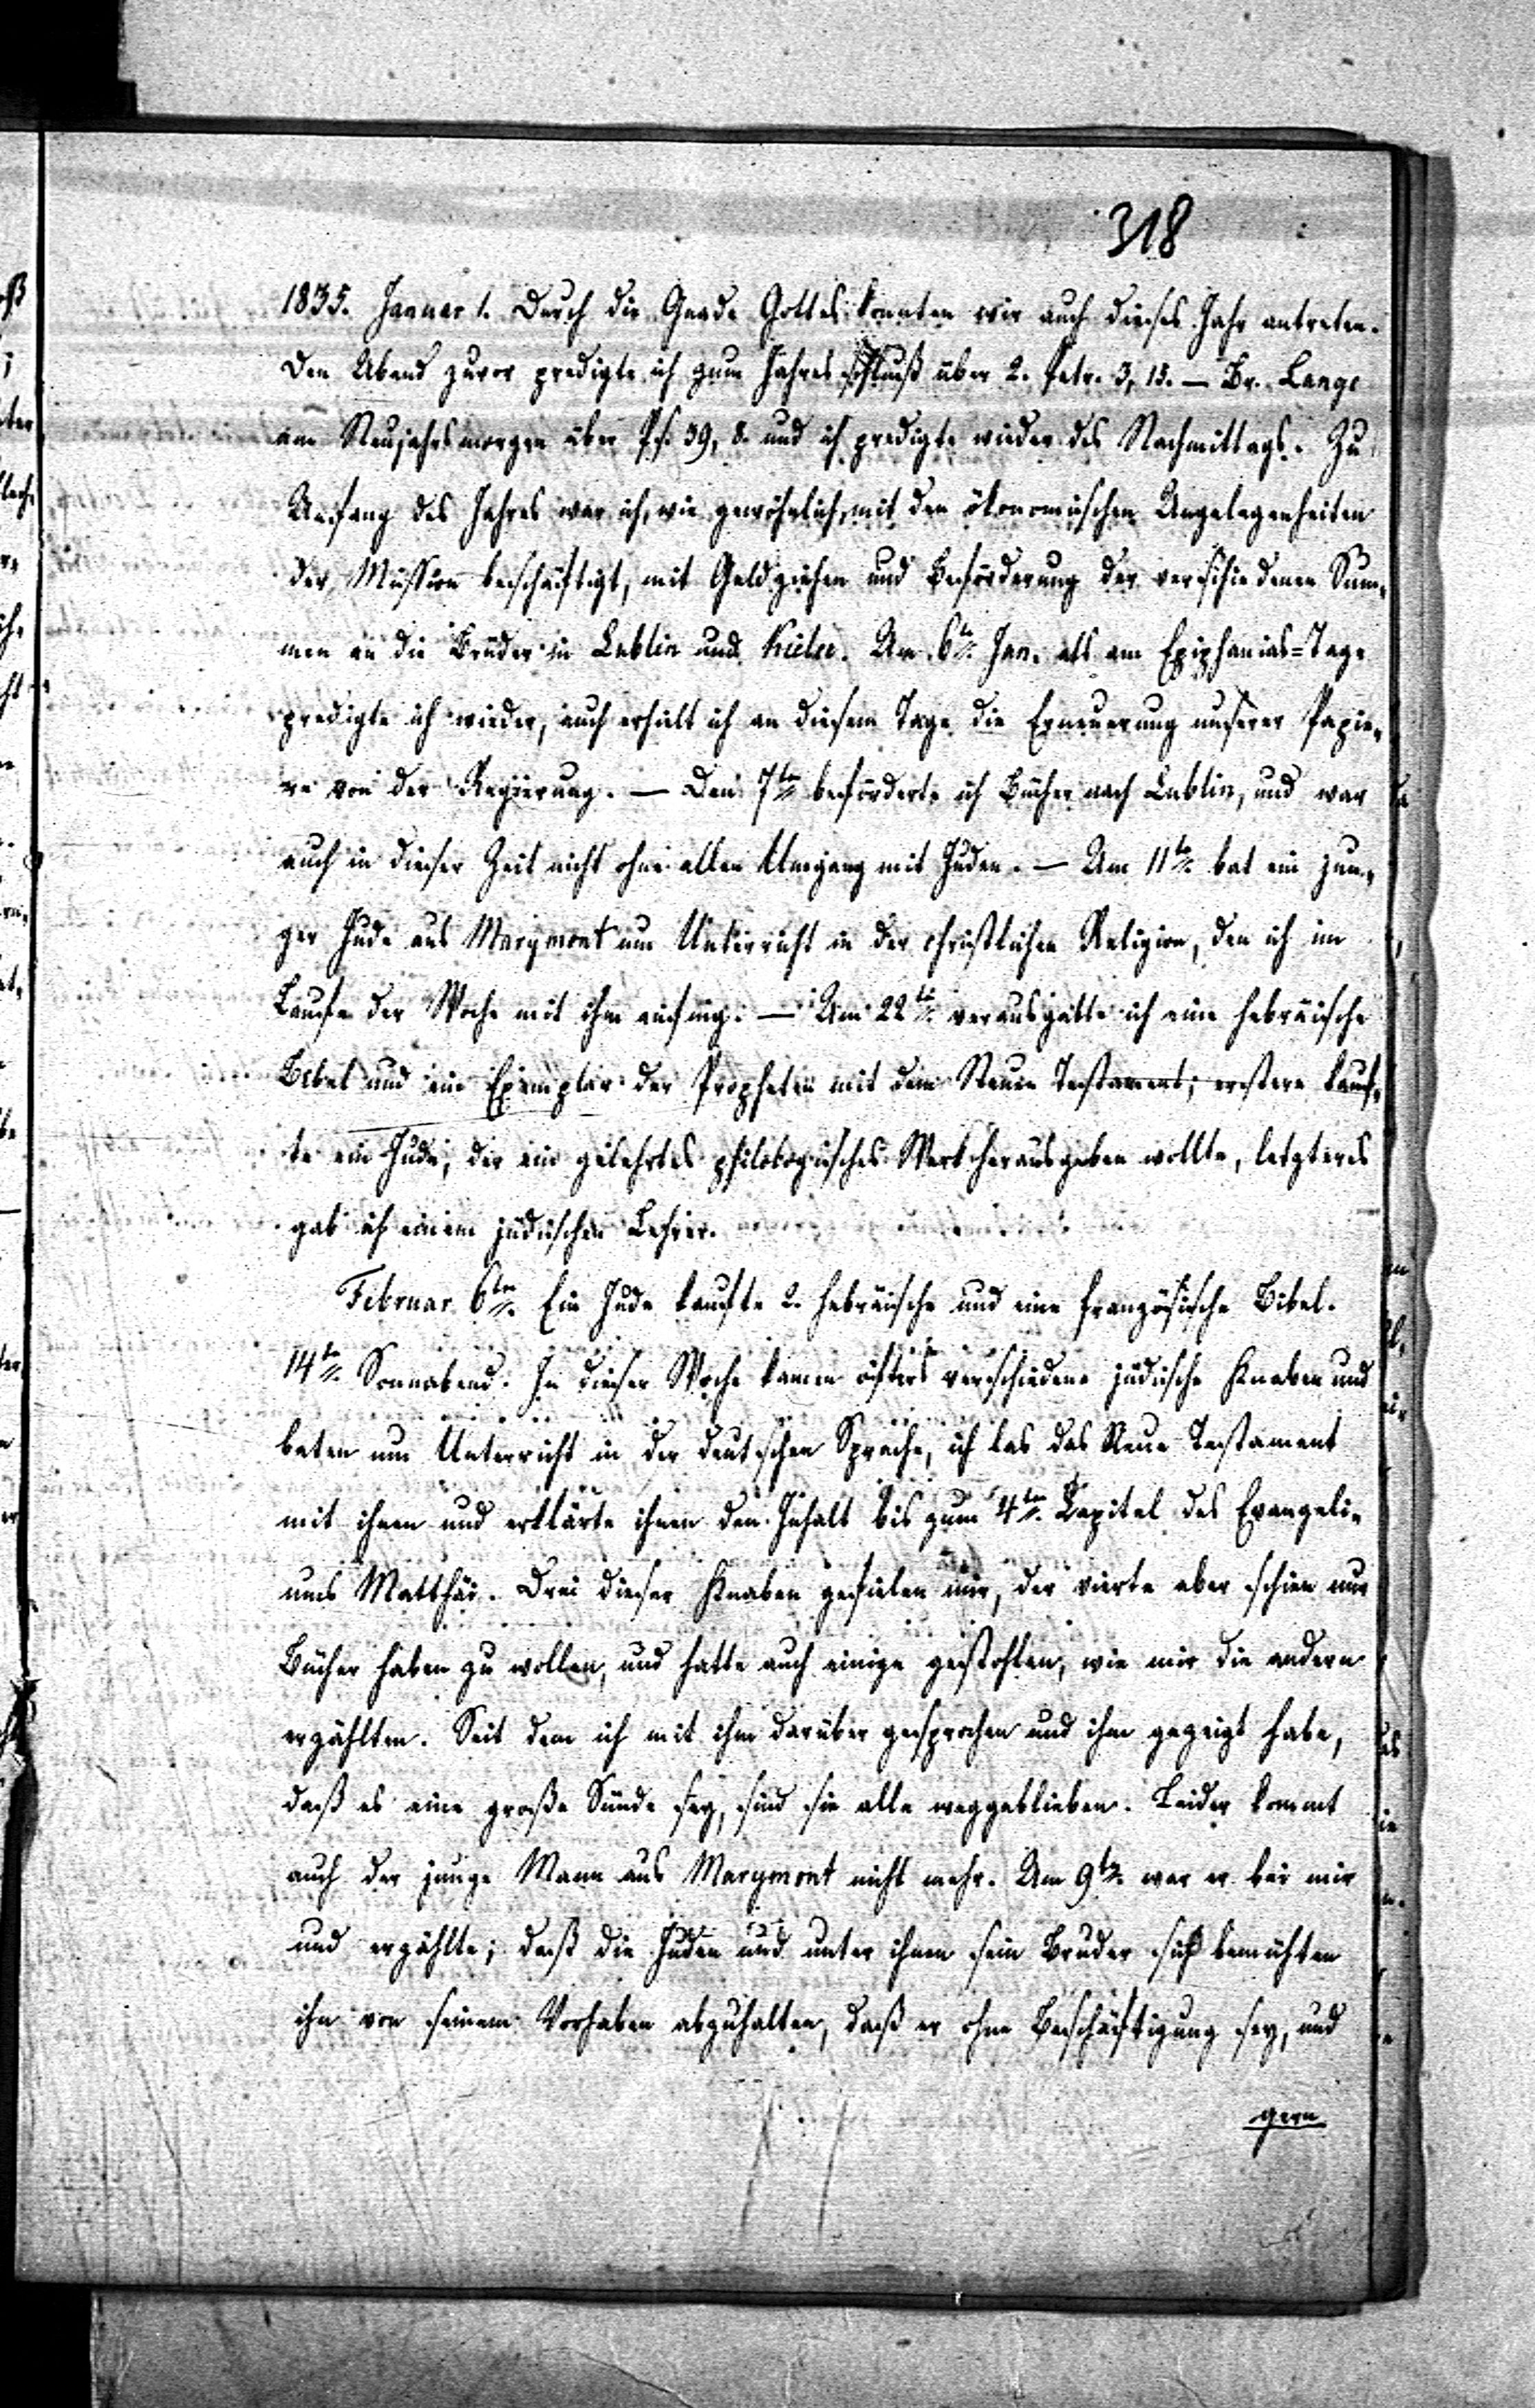 318
1835. Januar 1. Durch die Gnade Gottes konnten wir auch dieses Jahr antreten.
Den Abend zuvor predigte ich zum Jahresschluß über 2. Petr. 3, 15. — Br. Lange
am Neujahrsmorgen über Ps. 39, 8. und ich predigte wieder des Nachmittags. Zu
Anfang des Jahres war ich, wie gewöhnlich, mit den ökonomischen Angelegenheiten
der Mission beschäftigt, mit Geldziehen und Beförderung der verschiedenen Sum-
men an die Brüder in Lublin und Kielce. Am 6ten Jan. als am Epiphanias-Tage
predigte ich wieder, auch erhielt ich an diesem Tage die Erneuerung unserer Papie-
re von der Regierung. — Den 7ten beförderte ich Bücher nach Lublin, und war
auch in dieser Zeit nicht ohne allen Umgang mit Juden. — Am 11ten bat ein jun-
ger Jude aus Marymont um Unterricht in der christlichen Religion, den ich im
Laufe der Woche mit ihm anfing. — Am 22ten verausgabte ich eine hebräische
Bibel und ein Exemplar der Propheten mit dem Neuen Testament; erstere kauf-
te ein Jude, der ein gelehrtes philologisches Werk herausgeben wollte, letzteres
gab ich einem jüdischen Lehrer.
Februar 6ten. Ein Jude kaufte 2. hebräische und eine französische Bibel.
14ten Sonnabend. In dieser Woche kamen öfters verschiedene jüdische Knaben und
baten um Unterricht in der deutschen Sprache, ich las das Neue Testament
mit ihnen und erklärte ihnen den Inhalt bis zum 4ten Capitel des Evangeli-
ums Matthäi. Drei dieser Knaben gefielen mir, der vierte aber schien nur
Bücher haben zu wollen, und hatte auch einige gestohlen, wie mir die andern
erzählten. Seit dem ich mit ihm darüber gesprochen und ihm gezeigt habe,
daß es eine große Sünde sey, sind sie alle weggeblieben. Leider kommt
auch der junge Mann aus Marymont nicht mehr. Am 9ten war er bei mir
und erzählte; daß die Juden und unter ihnen sein Bruder sich bemühten
ihn von seinem Vorhaben abzuhalten, daß er ohne Beschäftigung sey, und
gern